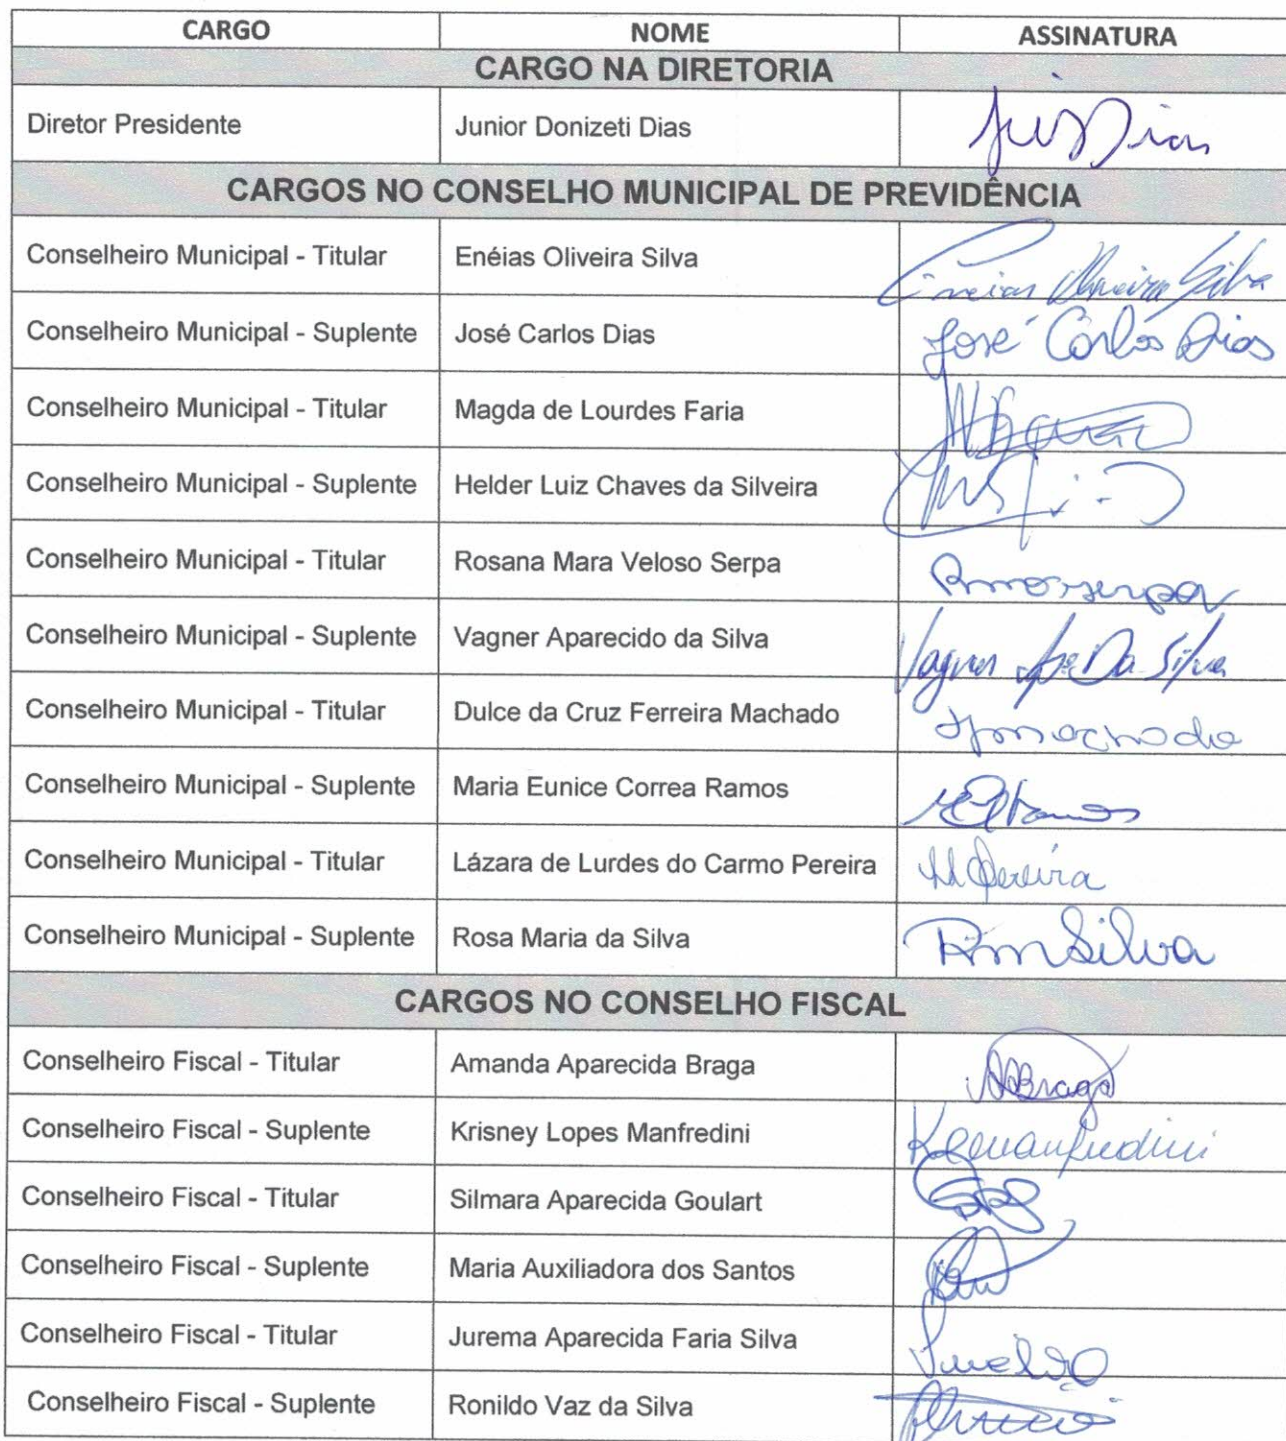 CARGO NOME ASSINATURA
CARGO NA DIRETORIA
Diretor Presidente Junior Donizeti Dias Dias
CARGOS NO CONSELHO MUNICIPAL DE PREVIDÊNCIA
Conselheiro Municipal - Titular Enéias Oliveira Silva Enéias Oliveira Silva
Conselheiro Municipal - Suplente José Carlos Dias José Carlos Dias
Conselheiro Municipal - Titular Magda de Lourdes Faria
Conselheiro Municipal - Suplente Helder Luiz Chaves da Silveira
Conselheiro Municipal - Titular Rosana Mara Veloso Serpa
Conselheiro Municipal - Suplente Vagner Aparecido da Silva Vagner Ap. Da Silva
Conselheiro Municipal - Titular Dulce da Cruz Ferreira Machado
Conselheiro Municipal - Suplente Maria Eunice Correa Ramos
Conselheiro Municipal - Titular Lázara de Lurdes do Carmo Pereira Pereira
Conselheiro Municipal - Suplente Rosa Maria da Silva RmSilva
CARGOS NO CONSELHO FISCAL
Conselheiro Fiscal - Titular Amanda Aparecida Braga AABraga
Conselheiro Fiscal - Suplente Krisney Lopes Manfredini KLManfredini
Conselheiro Fiscal - Titular Silmara Aparecida Goulart
Conselheiro Fiscal - Suplente Maria Auxiliadora dos Santos
Conselheiro Fiscal - Titular Jurema Aparecida Faria Silva
Conselheiro Fiscal - Suplente Ronildo Vaz da Silva